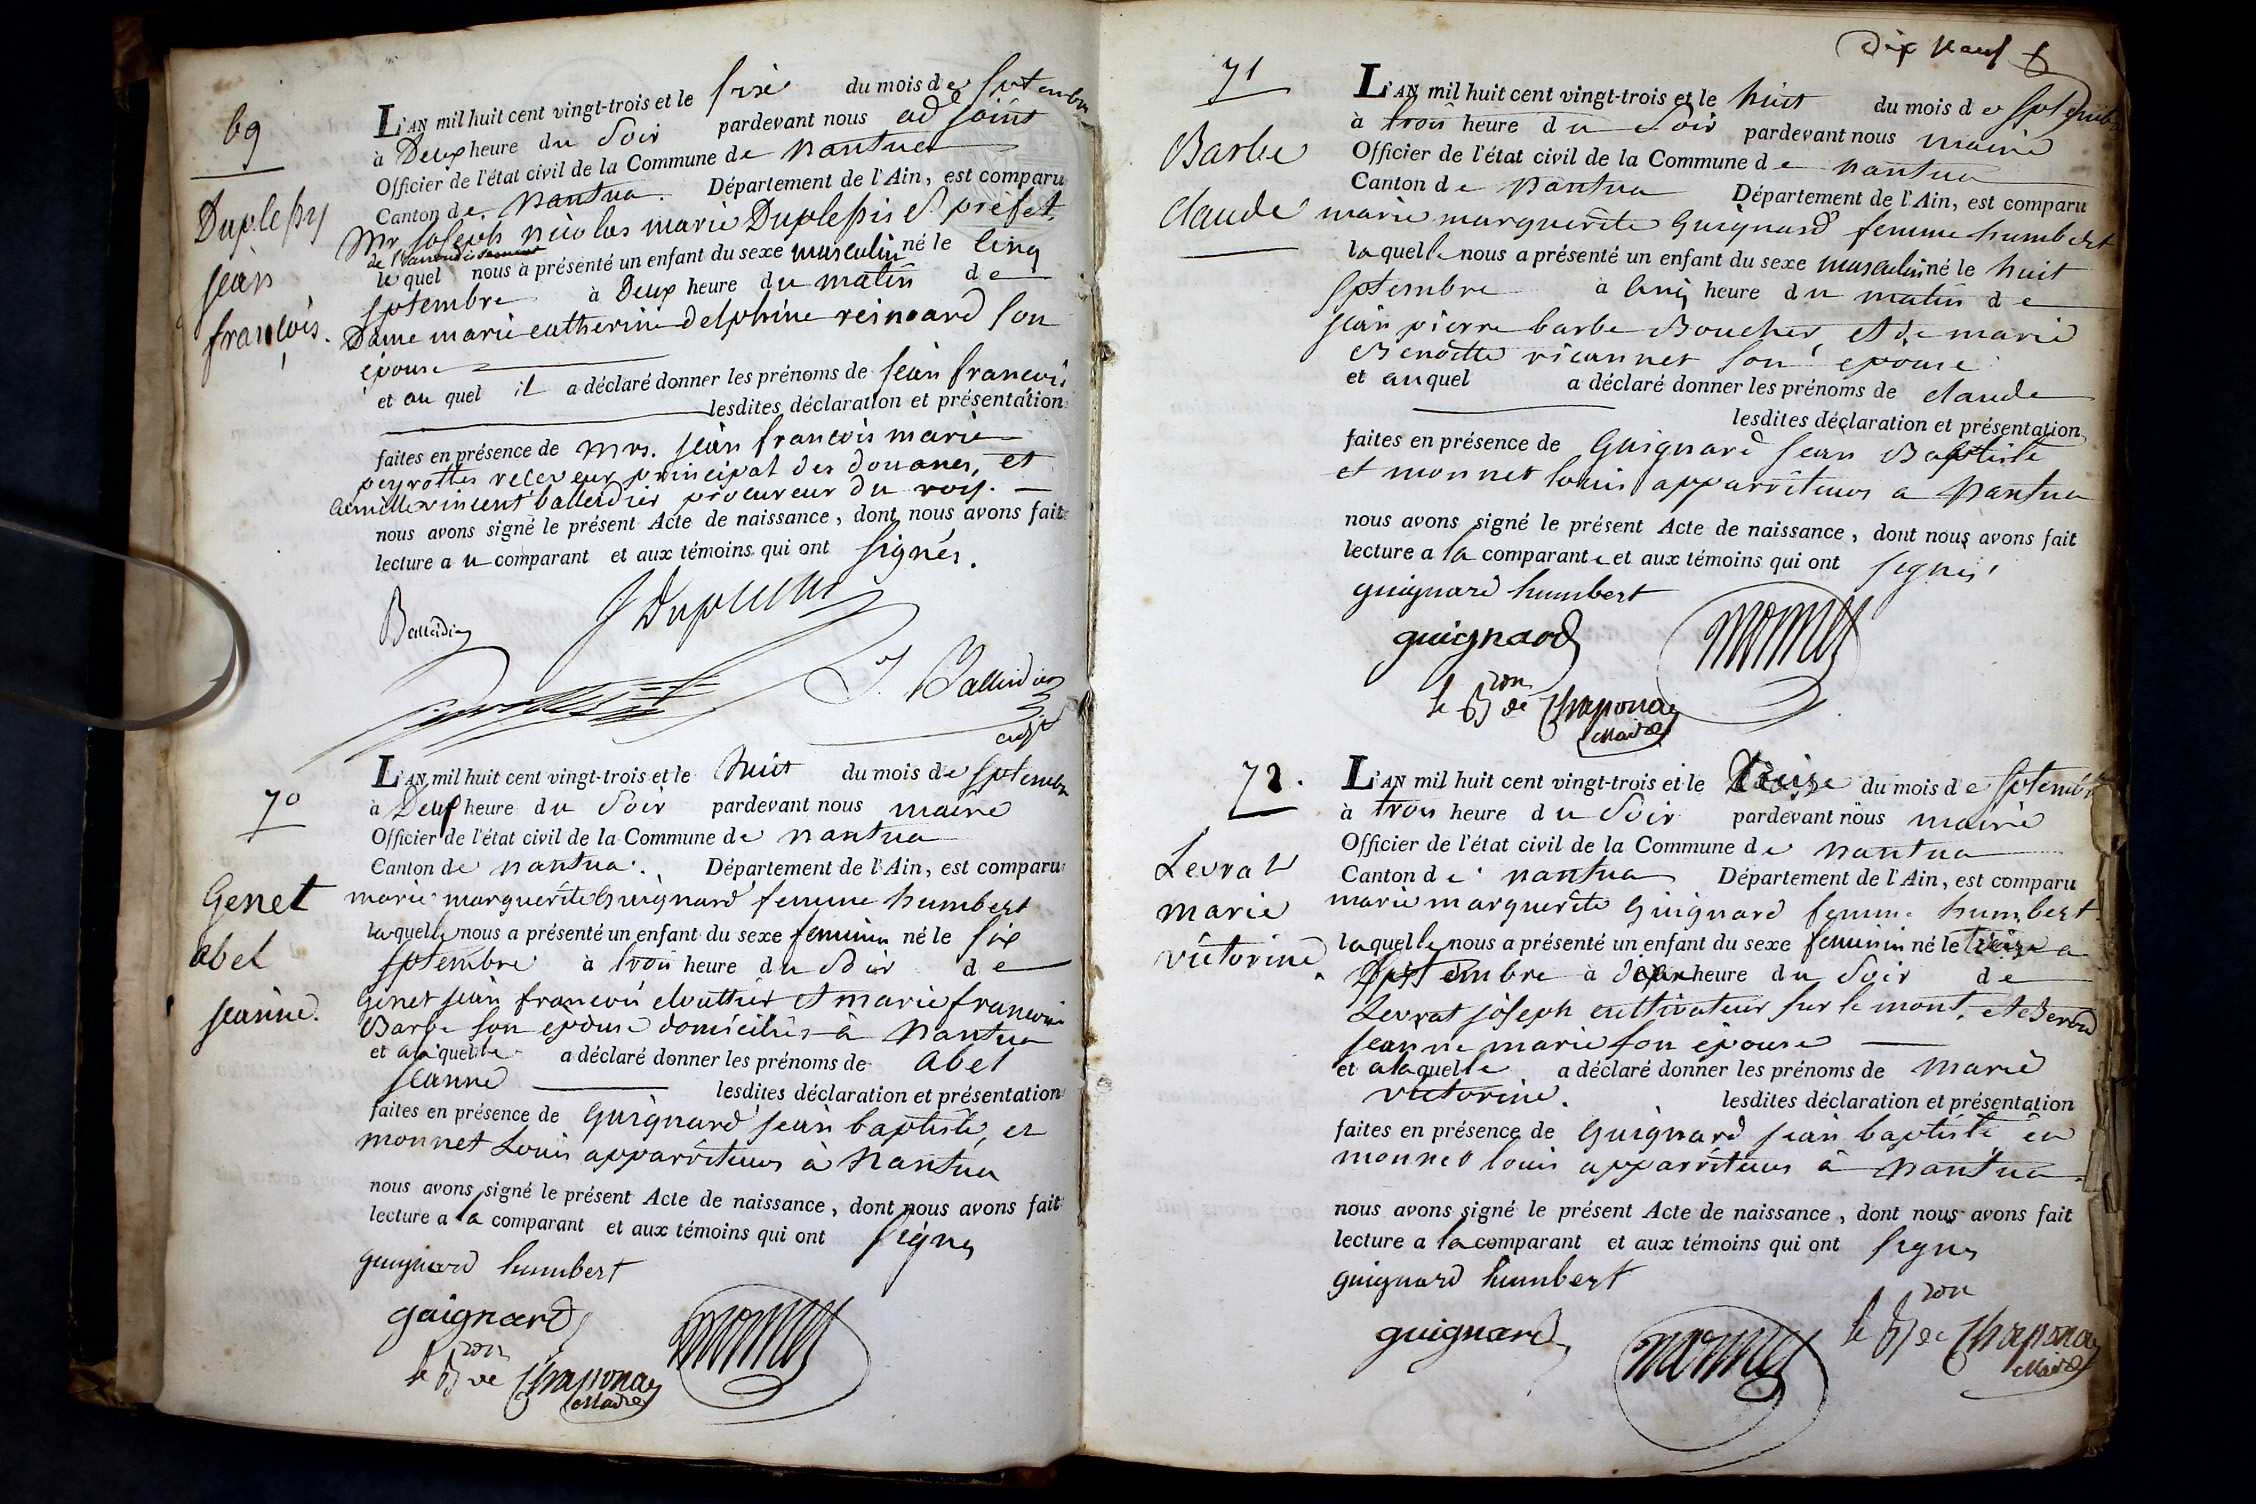 69
Duplessis
jean
françois.
L'AN mil huit cent vingt-trois et le sixe du mois de septembre
à Deux heure du Soir pardevant nous adjoint
Officier de l'état civil de la Commune de nantua
Canton de nantua. Département de l'Ain, est comparu
Mr joseph nicolas marie Duplessis S. préfet,
de l'arrondissement
le quel nous a présenté un enfant du sexe masculin né le cinq
septembre à Deux heure du matin de
Dame marie catherine delphine reinard son
épouse
et au quel il a déclaré donner les prénoms de jean françois
lesdites déclaration et présentation
faites en présence de mrs. jean françois marie
peyrottes receveur principal des douanes, et
vincent balleidier procureur du roy.
nous avons signé le présent Acte de naissance, dont nous avons fait
lecture au comparant et aux témoins qui ont signés.
Balleidier J Duplessis
J. Balleidier
adjt
70
Genet
abel
jeanne.
L'AN mil huit cent vingt-trois et le huit du mois de septembre
à Deux heure du Soir pardevant nous maire
Officier de l'état civil de la Commune de nantua
Canton de nantua. Département de l'Ain, est comparu
marie marguerite Guignard femme humbert
laquelle nous a présenté un enfant du sexe feminin né le six
septembre à trois heure du Soir de
Genet jean françois cloutier et marie françoise
Barbe son épouse domiciliés à nantua
et a laquelle a déclaré donner les prénoms de abel
jeanne lesdites déclaration et présentation
faites en présence de Guignard jean baptiste, et
monnet Louis apparriteurs à nantua
nous avons signé le présent Acte de naissance, dont nous avons fait
lecture a la comparant et aux témoins qui ont signés
guignard humbert
guignard monnet
le Bon de Chaponay
Maire
Dix neuf
71
Barbe
claude
L'AN mil huit cent vingt-trois et le huit du mois de septembre
à trois heure du Soir pardevant nous maire
Officier de l'état civil de la Commune de nantua
Canton de nantua Département de l'Ain, est comparu
marie marguerite Guignard femme humbert
laquelle nous a présenté un enfant du sexe masculin né le huit
septembre à cinq heure du matin de
jean pierre barbe Boucher, et de marie
Benoitte ricannet son épouse
et auquel a déclaré donner les prénoms de claude
lesdites déclaration et présentation
faites en présence de Guignard jean Baptiste
et monnet louis apparriteurs a nantua
nous avons signé le présent Acte de naissance, dont nous avons fait
lecture a la comparante et aux témoins qui ont signés
guignard humbert
guignard monnet
le Bon de Chaponay
Maire
72.
Levrat
marie
victorine
L'AN mil huit cent vingt-trois et le treize du mois de septembre
à trois heure du Soir pardevant nous maire
Officier de l'état civil de la Commune de nantua
Canton de nantua Département de l'Ain, est comparu
marie marguerite Guignard femme humbert
laquelle nous a présenté un enfant du sexe feminin né le treize
septembre à deux heure du Soir de
Levrat joseph cultivateur sur le mont, et
jeanne marie son épouse
et a laquelle a déclaré donner les prénoms de marie
victorine. lesdites déclaration et présentation
faites en présence de Guignard jean baptiste et
monnet louis apparriteurs à nantua.
nous avons signé le présent Acte de naissance, dont nous avons fait
lecture a la comparant et aux témoins qui ont signés
guignard humbert
guignard monnet le Bon de Chaponay
Maire